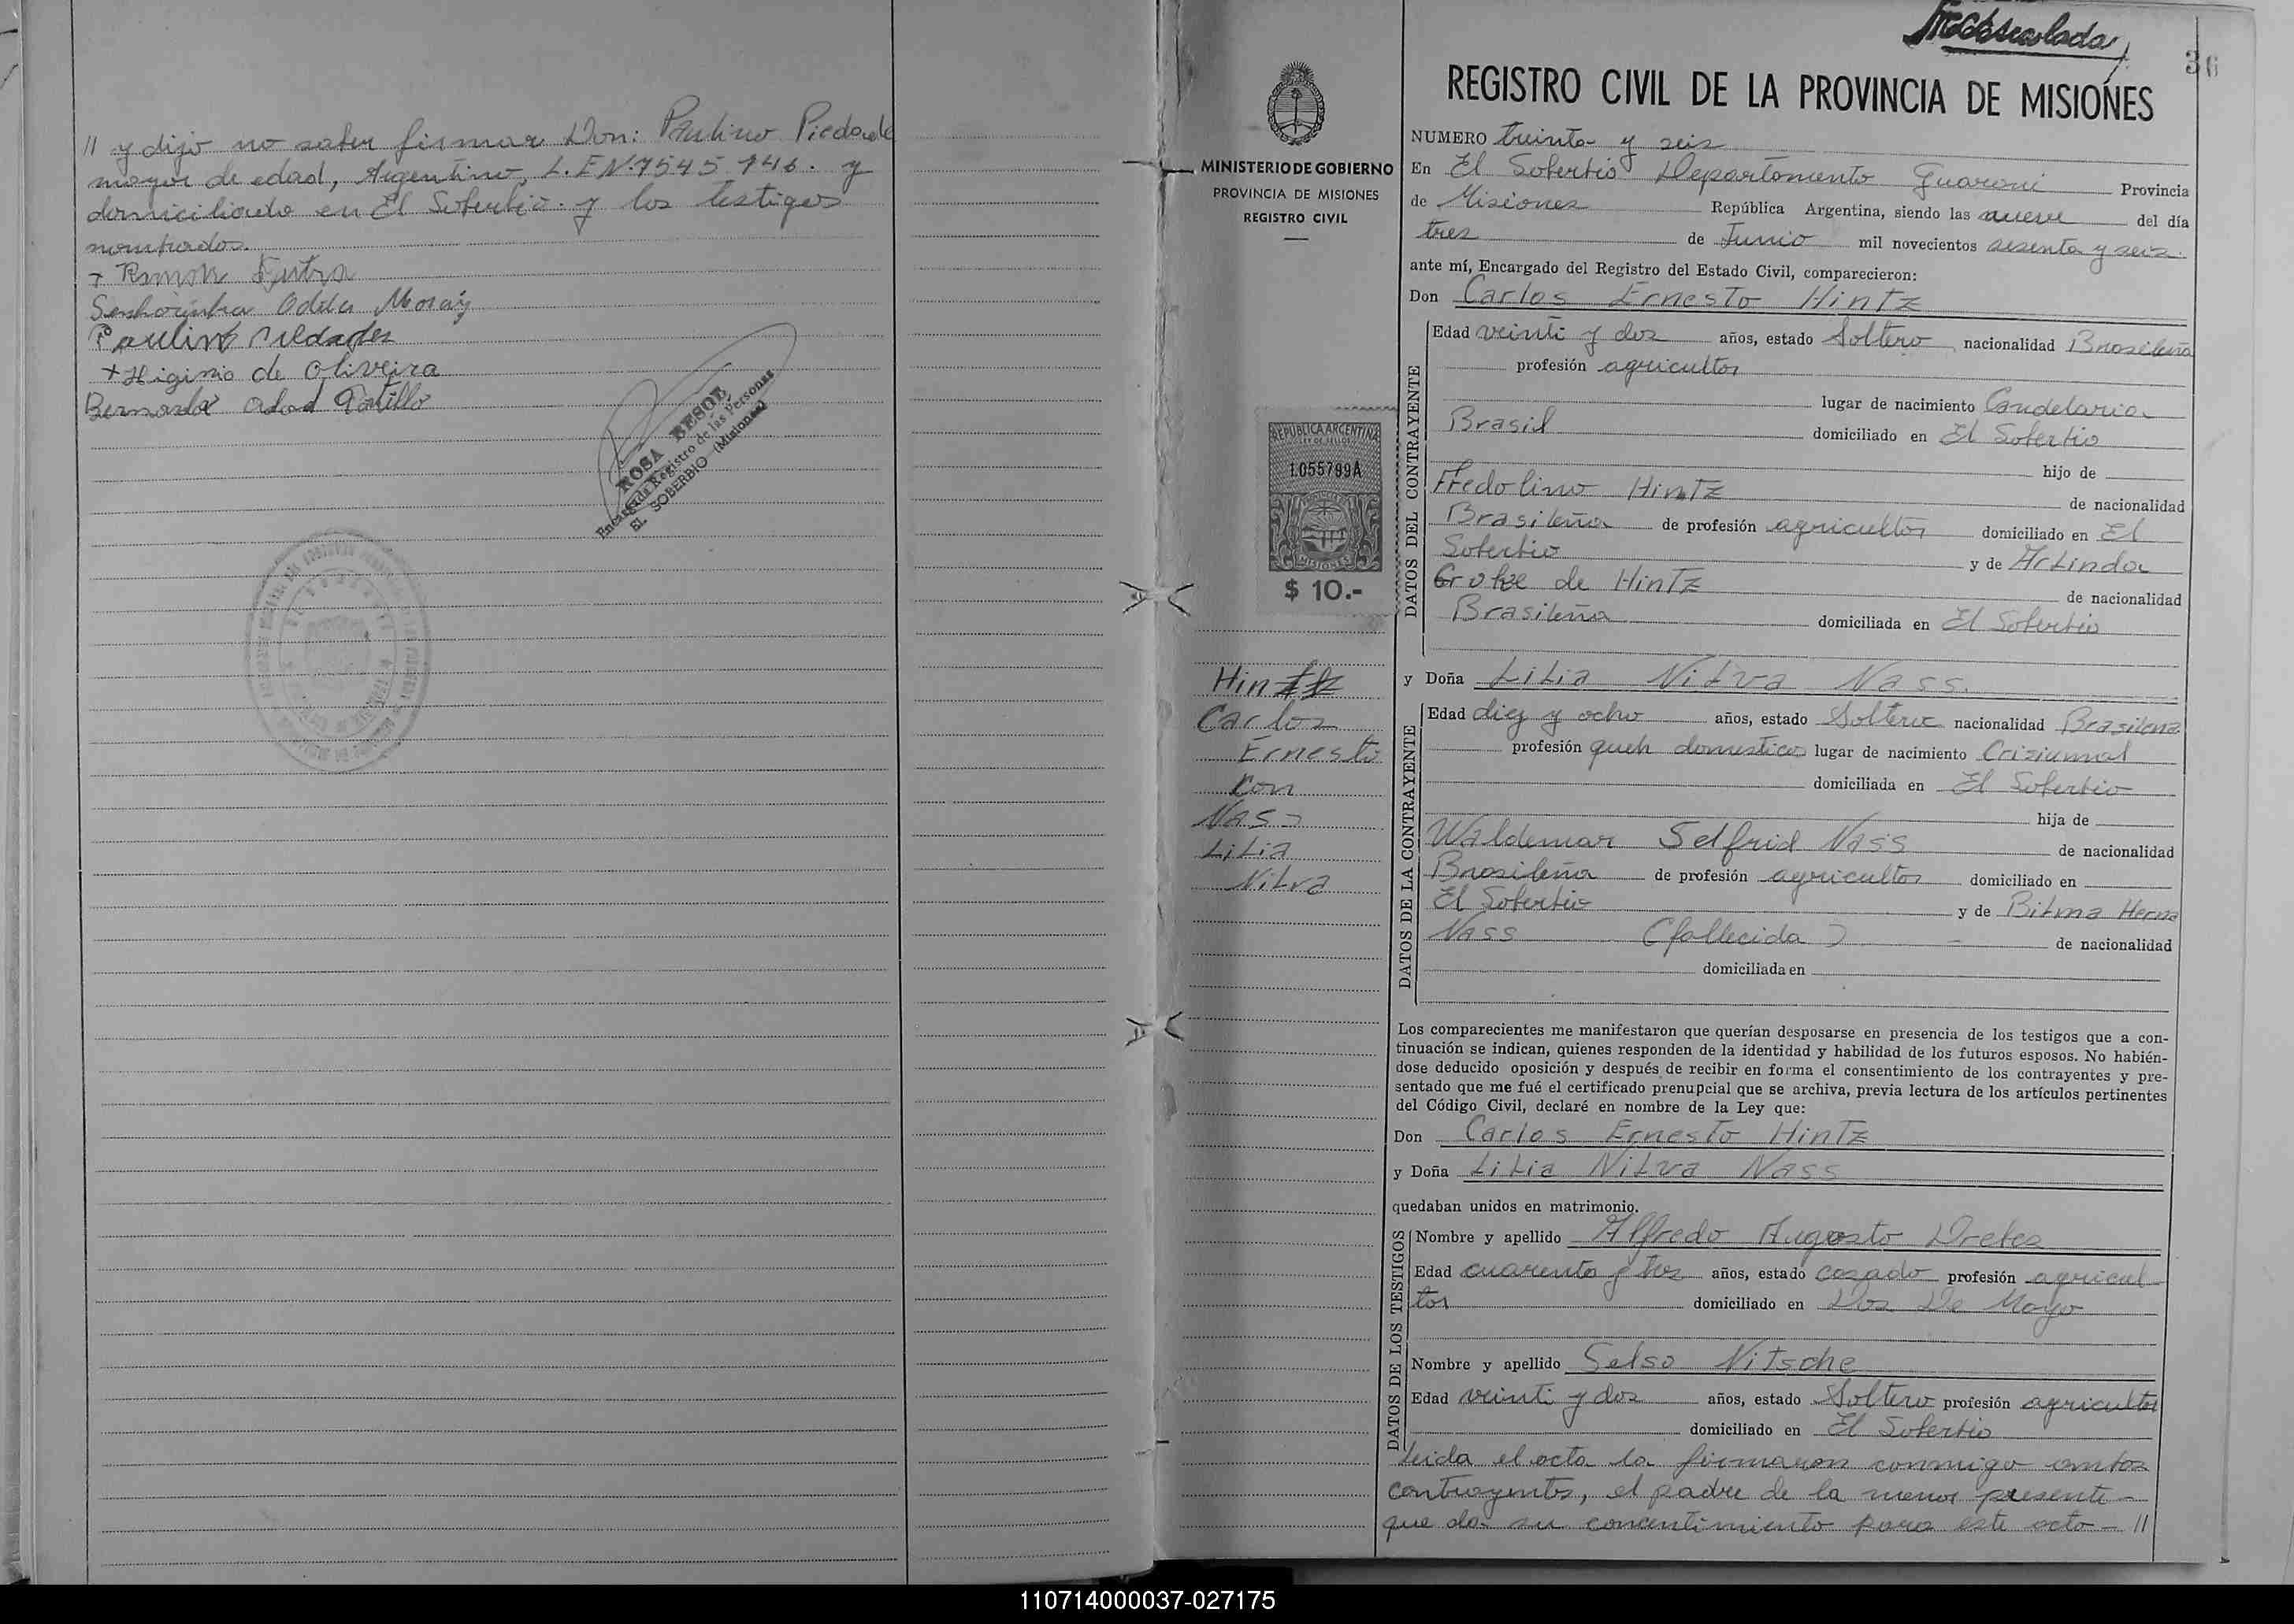 // y dijo no saber firmar Don: Paulino Piedade
mayor de edad, Argentino, L.E.Nº.7545.746. y
domiciliado en El Soberbio. y los testigos
nombrados.
+ Ramon
Senhorinha Odila Moraiz
Paulino
+ Higinio de Oliveira
Bernarda
ROSA BESOL
Encargada Registro de las Personas
EL SOBERBIO (Misiones)
36
MINISTERIO DE GOBIERNO
PROVINCIA DE MISIONES
REGISTRO CIVIL
REPUBLICA ARGENTINA
LEY DE SELLOS
1.055799A
MISIONES
$ 10.-
Hintz
Carlos
Ernesto
con
Nass
Lilia
Nilva
REGISTRO CIVIL DE LA PROVINCIA DE MISIONES
NUMERO treinta y seis
En El Soberbio Departamento Guarani Provincia
de Misiones República Argentina, siendo las nueve del día
tres de Junio mil novecientos sesenta y seis.
ante mí, Encargado del Registro del Estado Civil, comparecieron:
Don Carlos Ernesto Hintz
DATOS DEL CONTRAYENTE
Edad veinti y dos años, estado Soltero nacionalidad Brasileña
profesión agricultor
lugar de nacimiento Candelaria
Brasil domiciliado en El Soberbio
hijo de
Fredolino Hintz de nacionalidad
Brasileña de profesión agricultor domiciliado en El
Soberbio y de Arlinda
de Hintz de nacionalidad
Brasileña domiciliada en El Soberbio
y Doña Lilia Nilva Nass.
DATOS DE LA CONTRAYENTE
Edad diez y ocho años, estado Soltera nacionalidad Brasilena
profesión queh domesticos lugar de nacimiento Crisiumal
domiciliada en El Soberbio
hija de
Waldemar Selfrid Nass de nacionalidad
Brasileña de profesión agricultor domiciliado en
El Soberbio y de Bilma Herna
Nass (fallecida) - de nacionalidad
domiciliada en
Los comparecientes me manifestaron que querían desposarse en presencia de los testigos que a con-
tinuación se indican, quienes responden de la identidad y habilidad de los futuros esposos. No habién-
dose deducido oposición y después de recibir en forma el consentimiento de los contrayentes y pre-
sentado que me fué el certificado prenupcial que se archiva, previa lectura de los artículos pertinentes
del Código Civil, declaré en nombre de la Ley que:
Don Carlos Ernesto Hintz
y Doña Lilia Nilva Nass
quedaban unidos en matrimonio.
DATOS DE LOS TESTIGOS
Nombre y apellido Alfredo Augosto Dreles
Edad cuarenta y tres años, estado casado profesión agricul-
tor domiciliado en Dos De Mayo
Nombre y apellido Selso Nitsche
Edad veinti y dos años, estado Soltero profesión agricultor
domiciliado en El Soberbio
leida el acta la firmaron conmigo ambos
contrayentes, el padre de la menor presente-
que da su concentimiento para este acto- //
110714000037-027175